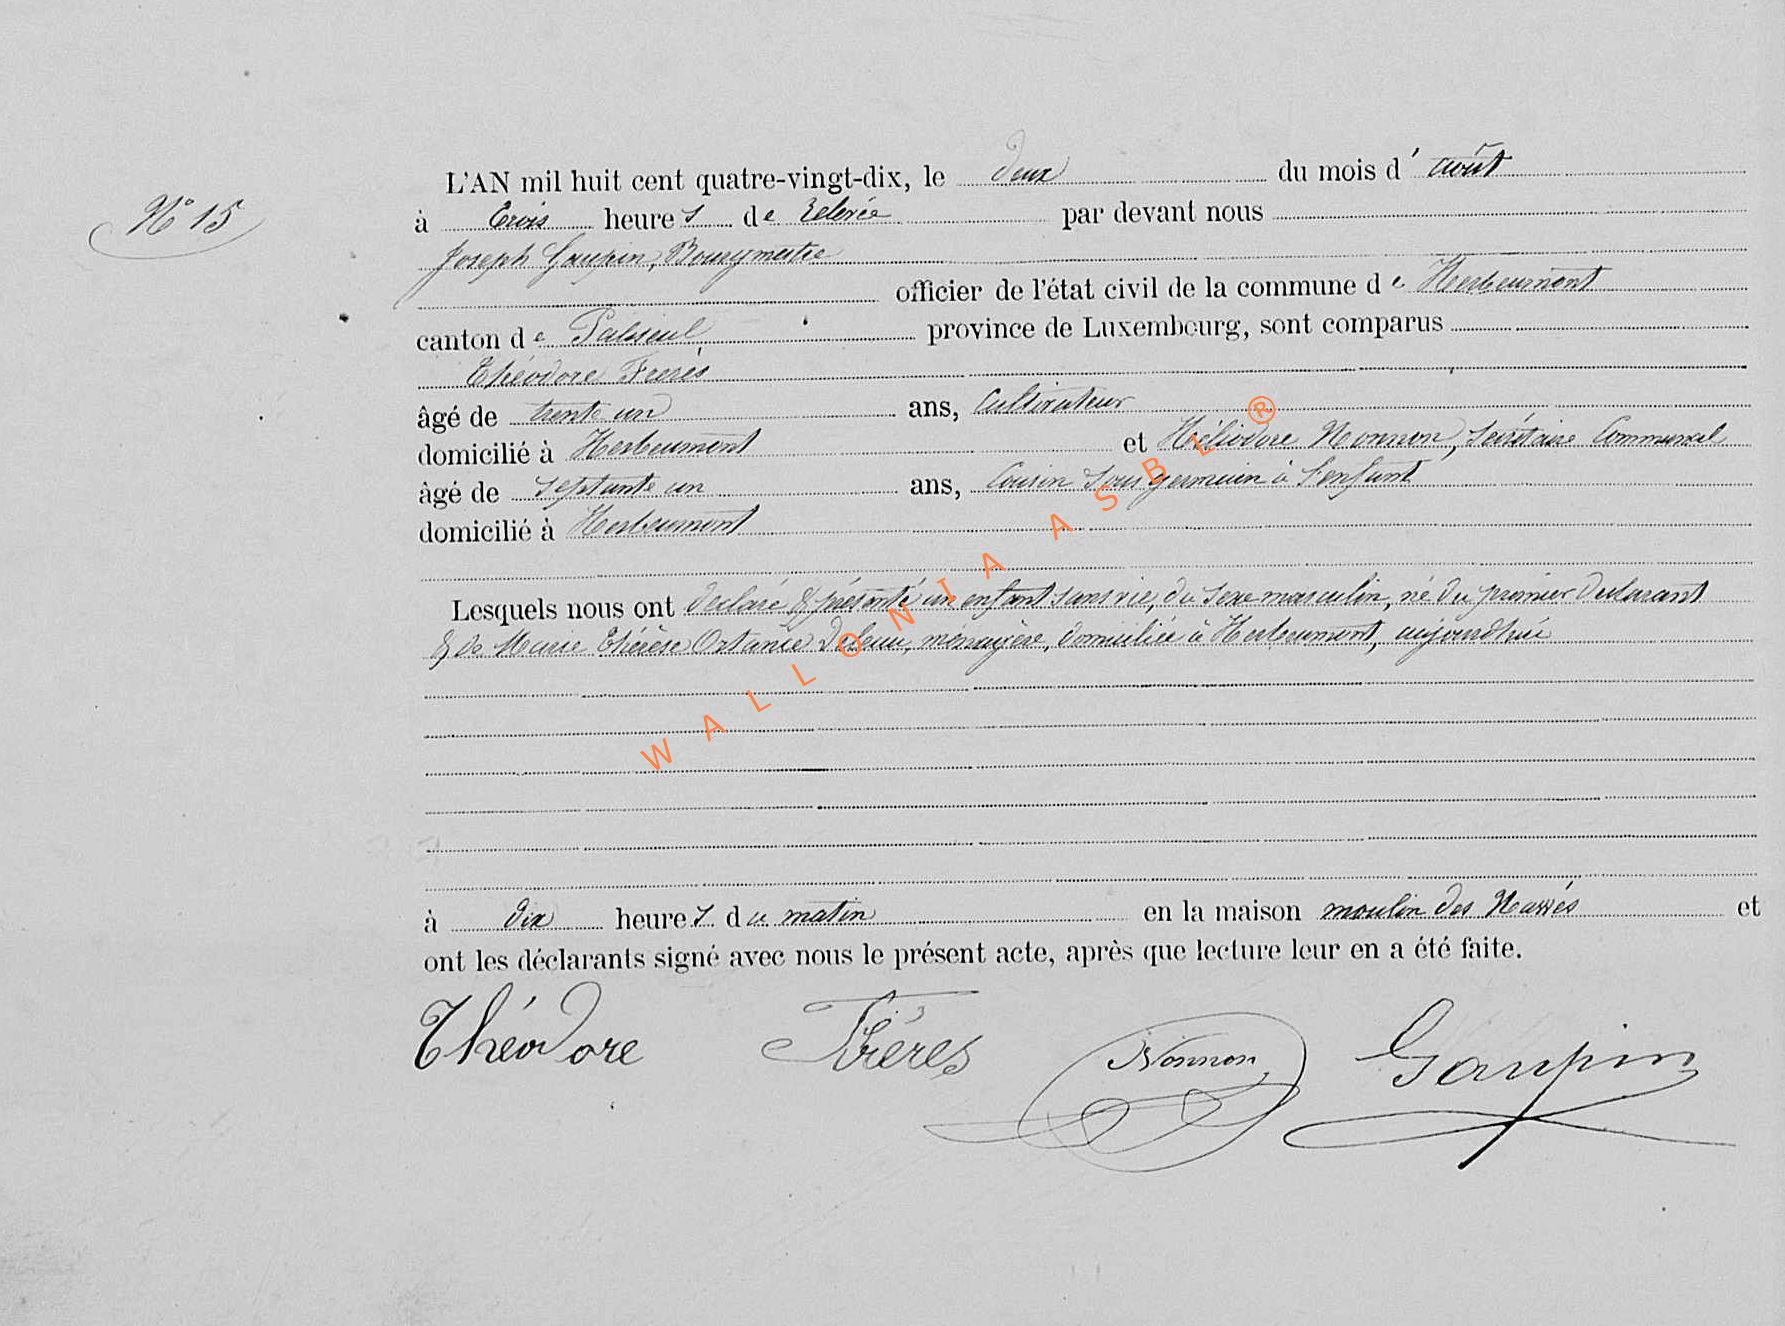 N° 15
L'AN mil huit cent quatre-vingt-dix, le deux du mois d'août
à trois heures de relevée par devant nous
Joseph Gaupin, Bourgmestre
officier de l'état civil de la commune de Herbeumont
canton de Paliseul province de Luxembourg, sont comparus
Théodore Frérès
âgé de trente un ans, Cultivateur
domicilié à Herbeumont et Héliodore Nonnon, Secrétaire Communal
âgé de septante un ans, Cousin sous germain à l'enfant
domicilié à Herbeumont
Lesquels nous ont déclaré & présenté un enfant sans vie, du sexe masculin, né du premier déclarant
& de Marie Thérèse Ortance, ménagère, domiciliée à Herbeumont, aujourdhui
à dix heures du matin en la maison moulin des et
ont les déclarants signé avec nous le présent acte, après que lecture leur en a été faite.
Théodore Fréres Nonnon Gaupin
WALLONIA ASBL ®